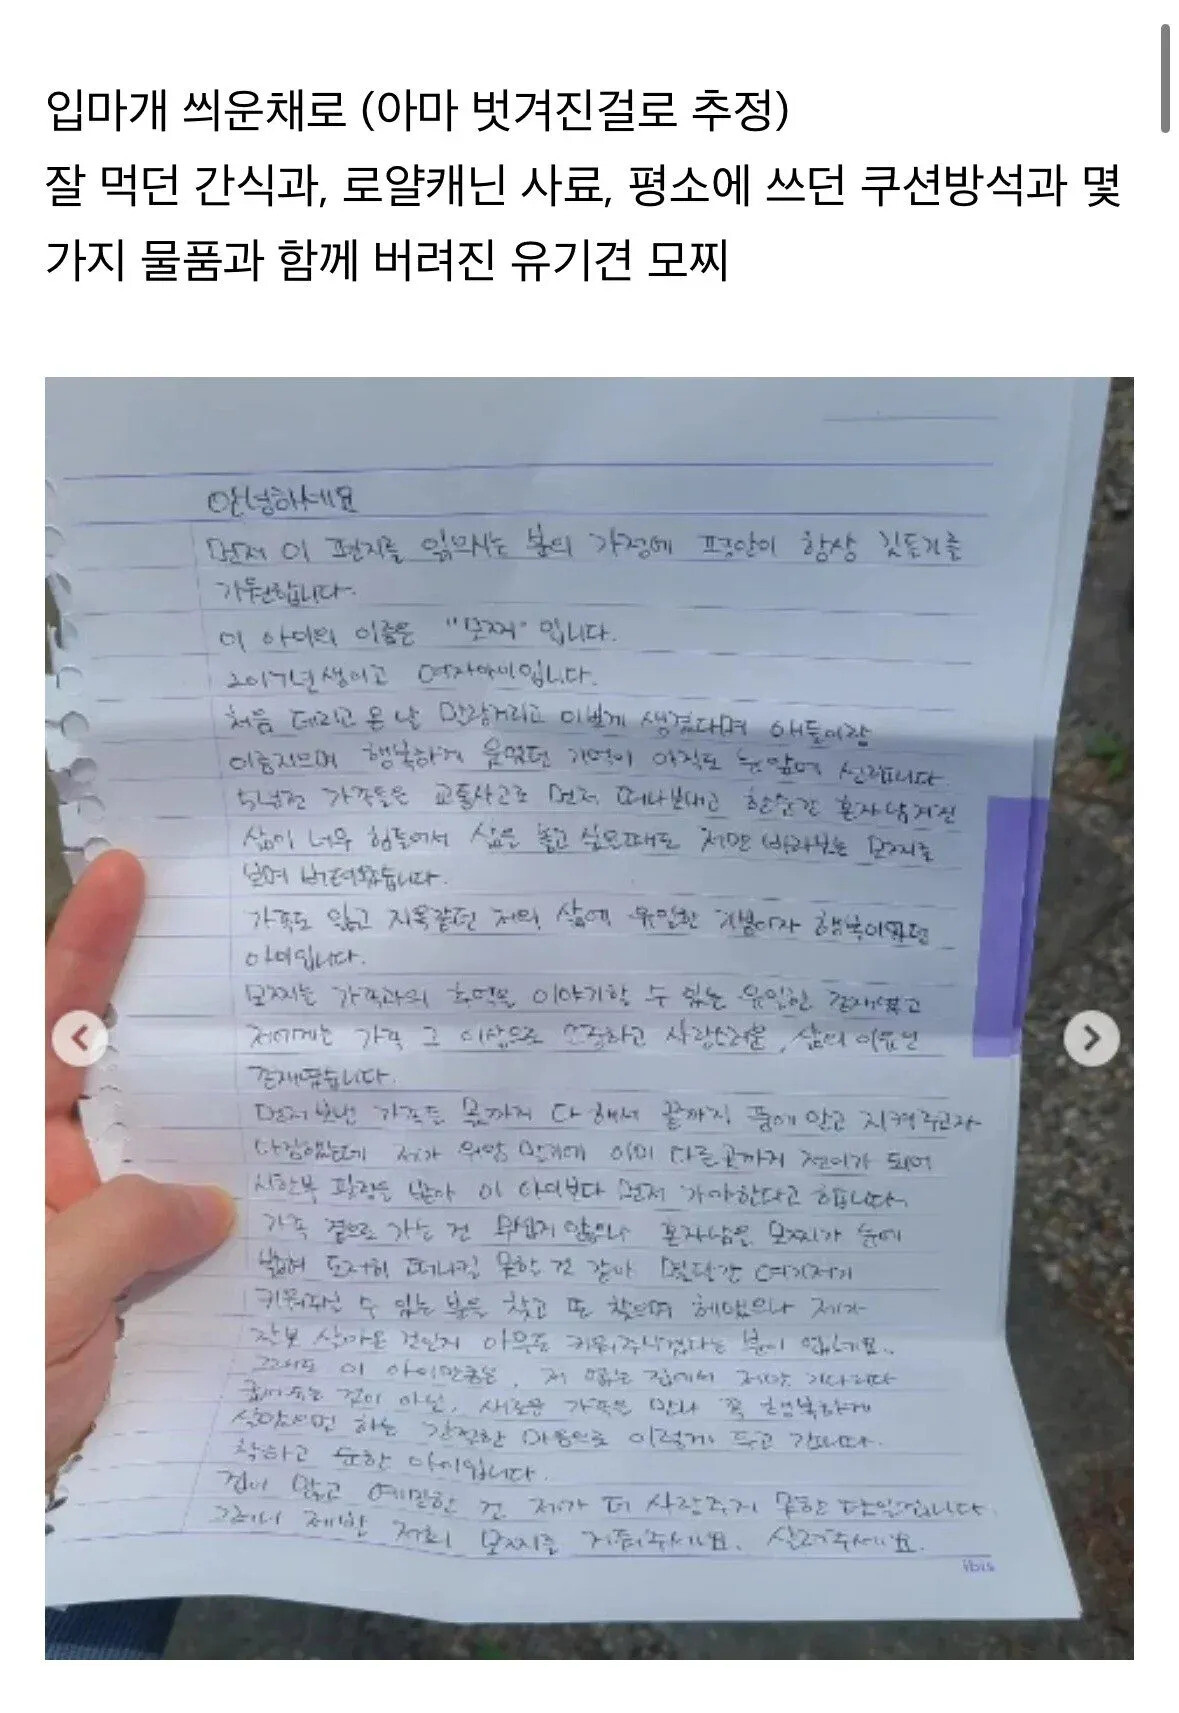 입마개 씌운채로 (아마 벗겨진걸로 추정)
잘 먹던 간식과, 로얄캐닌 사료, 평소에 쓰던 쿠션방석과 몇
가지 물품과 함께 버려진 유기견 모찌
안녕하세요
먼저 이 편지를 읽으시는 분의 가정에 평안이 항상 깃들기를
기원합니다.
이 아이의 이름은 "모찌" 입니다.
2017년생이고 여자아이입니다.
처음 데리고 온 날 말랑거리고 이쁘게 생겼다며 애들이랑
이름지으며 행복하게 웃었던 기억이 아직도 눈앞에 선합니다.
5년전 가족들은 교통사고로 먼저 떠나보내고 한순간 혼자남겨진
삶이 너무 힘들어서 삶을 놓고 싶을때도 저만 바라보는 모찌를
보며 버텨왔습니다.
가족도 잃고 지옥같던 저의 삶에 유일한 기쁨이자 행복이었던
아이입니다.
모찌는 가족과의 추억을 이야기할 수 있는 유일한 존재였고
저에게는 가족 그 이상으로 소중하고 사랑스러운, 삶의 이유인
존재였습니다.
먼저 보낸 가족들 몫까지 다 해서 끝까지 품에 안고 지켜주고자
다짐했는데 제가 위암 말기에 이미 다른곳까지 전이가 되어
시한부 판정을 받아 이 아이보다 먼저 가야한다고 합니다.
가족 곁으로 가는 건 무섭지 않으나 혼자남을 모찌가 눈에
밟혀 도저히 떠나질 못할 것 같아 몇달간 여기저기
키워주실 수 있는 분을 찾고 또 찾으며 헤맸으나 제가
잘못 살아온 것인지 아무도 키워주시겠다는 분이 없네요..
그래도 이 아이만큼은, 저 없는 집에서 저만 기다리다
굶어죽는 것이 아닌, 새로운 가족을 만나 꼭 행복하게
살았으면 하는 간절한 마음으로 이렇게 두고 갑니다.
착하고 순한 아이입니다.
겁이 많고 예민한 건 제가 더 사랑주지 못한 탓입니다.
그러니 제발 저희 모찌를 거둬주세요. 살려주세요.
ibis